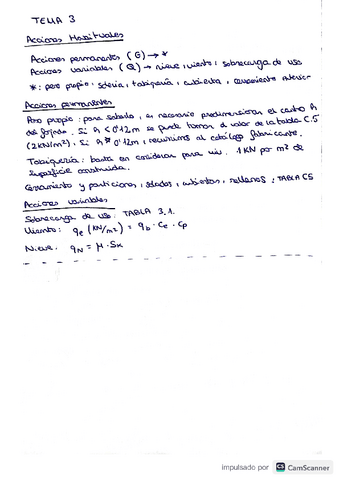 TEMA 3
Acciones Habituales
Acciones permanentes (G) → *
Acciones variables (Q) → nieve, viento, sobrecarga de uso
*: peso propio, soleria, tabiquería, cubierta, cerramiento exterior
Acciones permanentes
Peso propio: para saberlo, es necesario predimensionar el canto A
del forjado. Si A < 0'12m se puede tomar el valor de la tabla C.5
(2KN/m²), Si A > 0'12m, recurrimos al catálogo fabricante.
Tabiquería: basta en considerar para viv. 1 KN por m² de
superficie construida.
Cerramiento y particiones, solados, cubiertas, rellenos: TABLA C5
Acciones variables
Sobrecarga de uso: TABLA 3.1.
Viento: qe (KN/m²) = qb · Ce · Cp
Nieve: qN = μ · Sk
impulsado por CS CamScanner